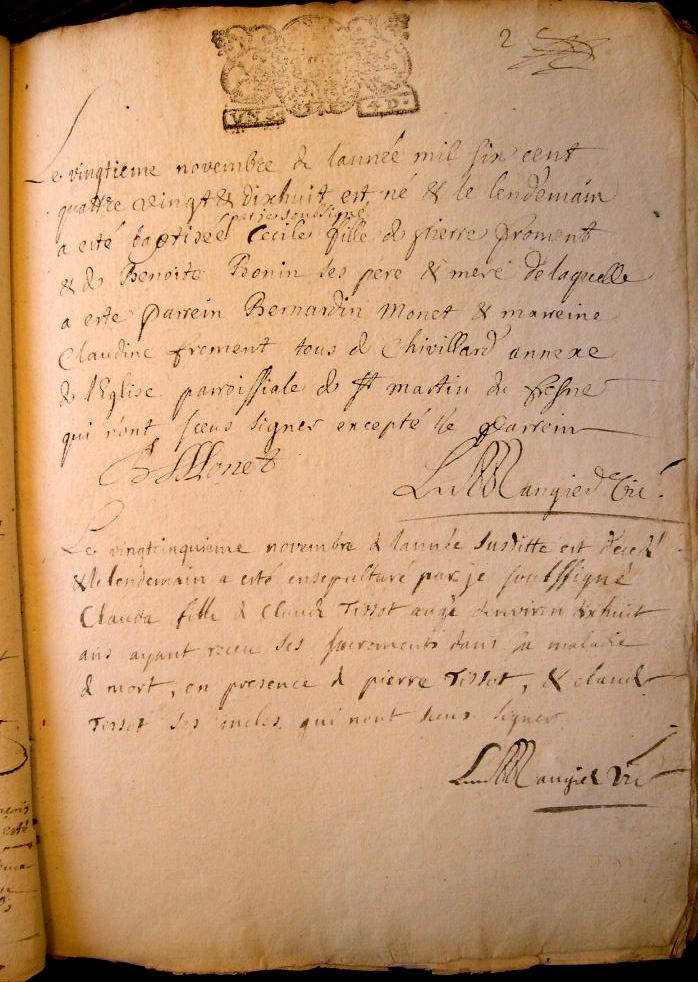 2
UN S. 4 D.
Le vingtieme novembre de lanneé mil six cent
quattre vingt & dixhuit est né & le lendemain
par je soussigné
a esté baptiseé Cecile fille de pierre froment
& de Benoite Bonin ses pere & mere de laquelle
a este Parrein Bernardin Monet & marreine
Claudine froment tous de Chivillard annexe
de l'Eglise parroissiale de St martin du fresne
qui n'ont sceus signer excepté le Parrein
B Monet
Mangier Vic.
Le vingtcinquieme novembre de lanneé susditte est decedé
& le lendemain a esté ensepulturé par je soubssigné
Clauda fille de Claude Tissot augé denviron dixhuit
ans ayant receu ses sacrements dans sa maladie
de mort, en presence de pierre Tissot, & claude
Tissot ses oncles qui nont sceus signer
Mangier Vic